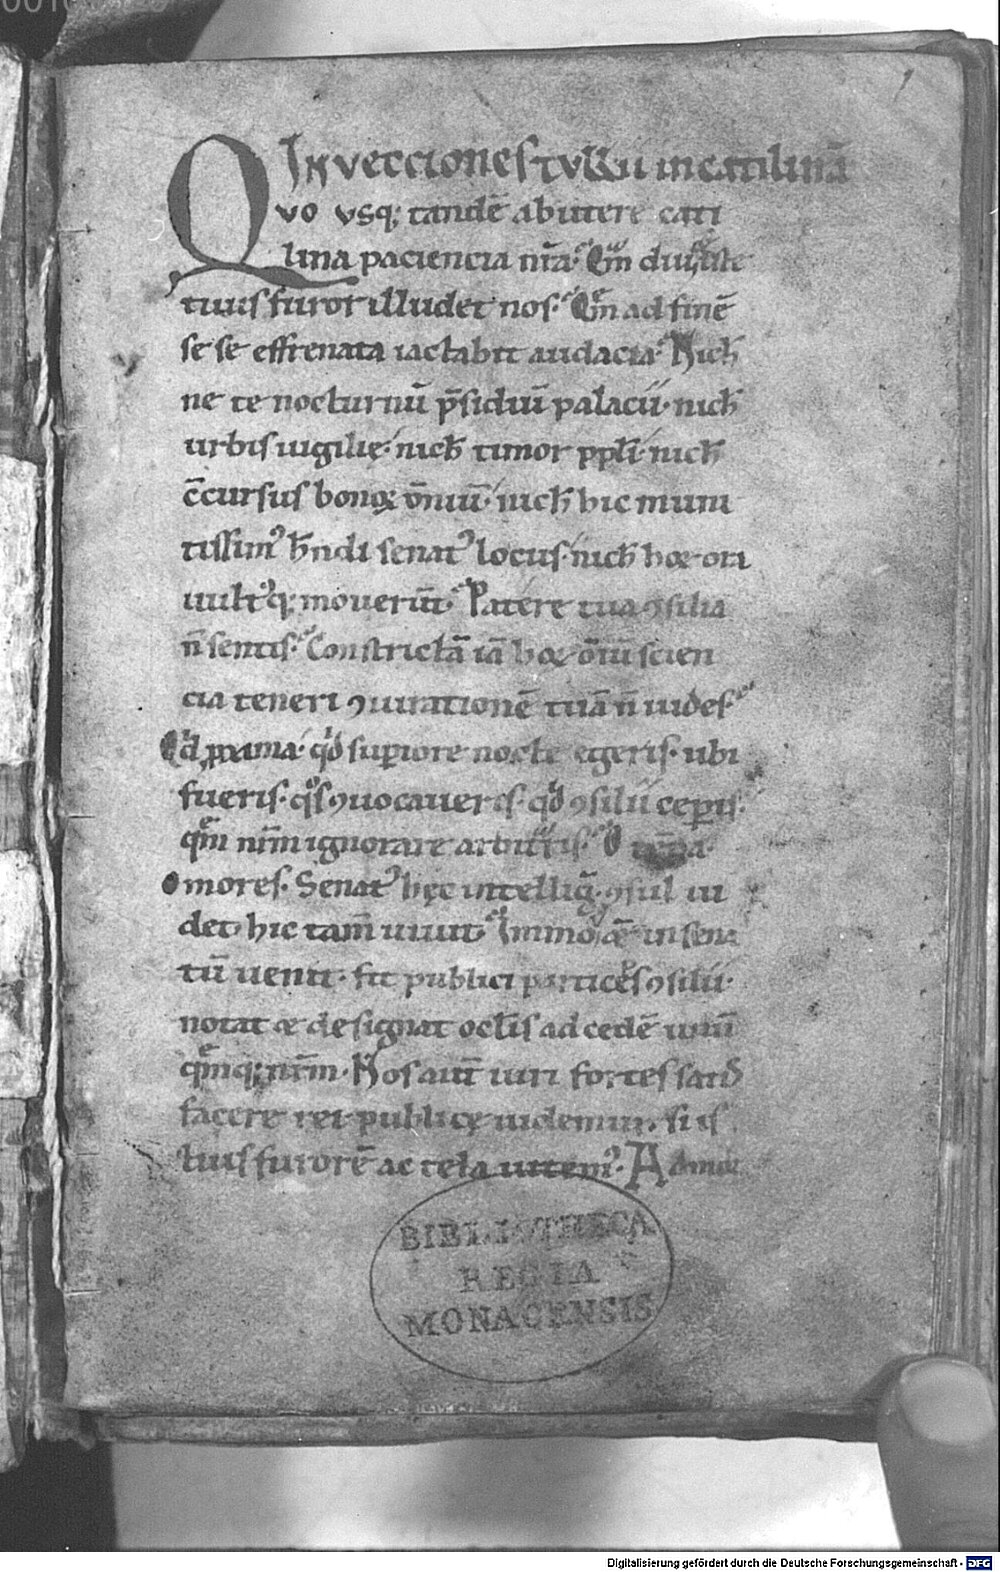 1
Invectiones tullii in catilinā
Quo usq; tandē abutere cati
lina paciencia nr̄a. Qm̄ diu iste
tuus furor illudet nos. Qm̄ ad finē
se se effrenata iactabit audacia. Nich̄
ne te nocturnū p̄sidiū palacii. nich̄
urbis uigilię. nich̄ timor ppl̄i. nich̄
c̄cursus bonoꝝ om̄iū. nich̄ hic muni
tissimꝰ h̄ndi senatꝰ locus. nich̄ hoꝝ ora
uultꝰq; mouer̄t. Patere tua ꝯsilia
n̄ sentis. Constrictā iā hoꝝ om̄iū scien
cia teneri ꝯiurationē tuā n̄ uides.
Qd̄ proxima. qd̄ supiore nocte egeris. ubi
fueris. qͦs ꝯuocaueris. qd̄ ꝯsilii ceperis.
qm̄ nr̄m ignorare arbitris. O tēpa.
O mores. Senatꝰ hęc intelligit. ꝯsul ui
det. hic tam̄ uiuit. Immo in sena
tū uenit. fit publici particeps ꝯsilii.
notat & designat ocl̄is ad cedē unū
qm̄q; nr̄m. Nos aut̄ uiri fortes satis
facere rei publicę uidemur. si is
tius furorē ac tela uitemꝰ. A
BIBLIOTHECA
REGIA
MONACENSIS
Digitalisierung gefördert durch die Deutsche Forschungsgemeinschaft - DFG